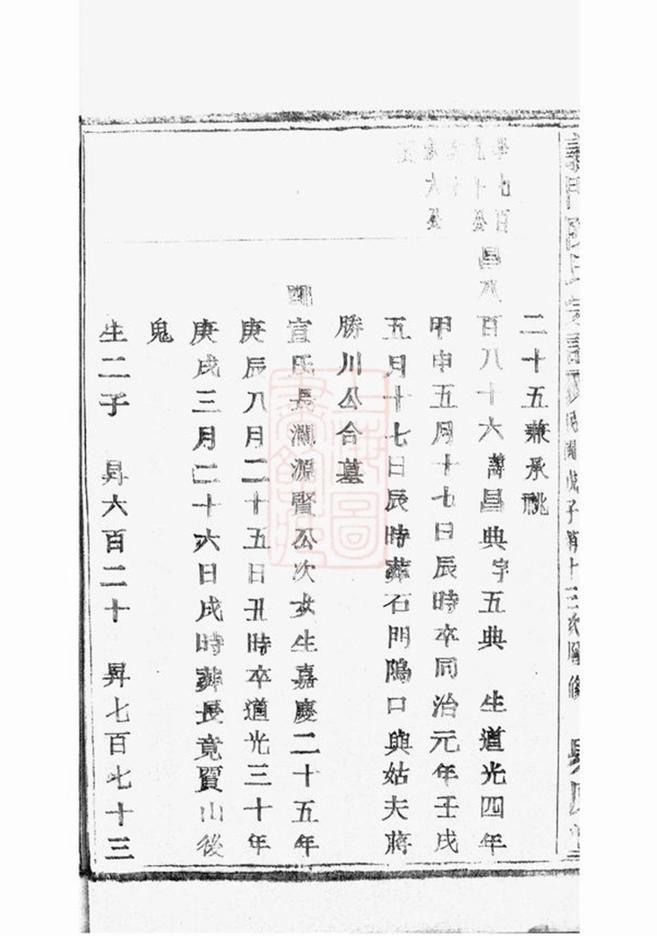 民國戊子第十三次續修
二十五兼承祧
昌八百八十六 諱昌典 字五典 生道光四年
甲申五月十七日辰時卒同治元年壬戌
五月十七日辰時葬石門隖口與姑夫蔣
勝川公合墓
配宣氏長瀾源賢公次女生嘉慶二十五年
庚辰八月二十五日丑時卒道光三十年
庚戌三月二十六日戌時葬長竟賢山後
鬼
生二子 昇六百二十 昇七百七十三